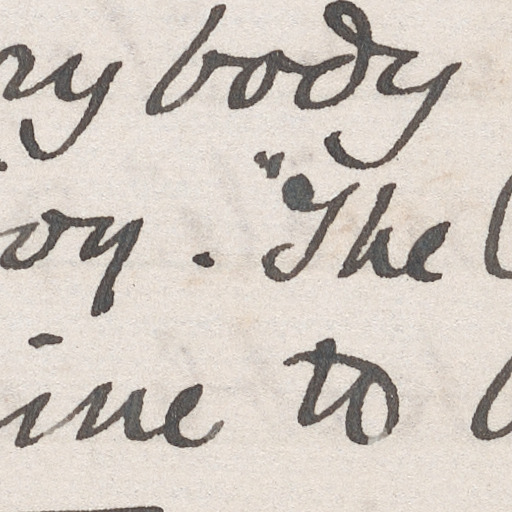 ry body
oy. "The
ine to